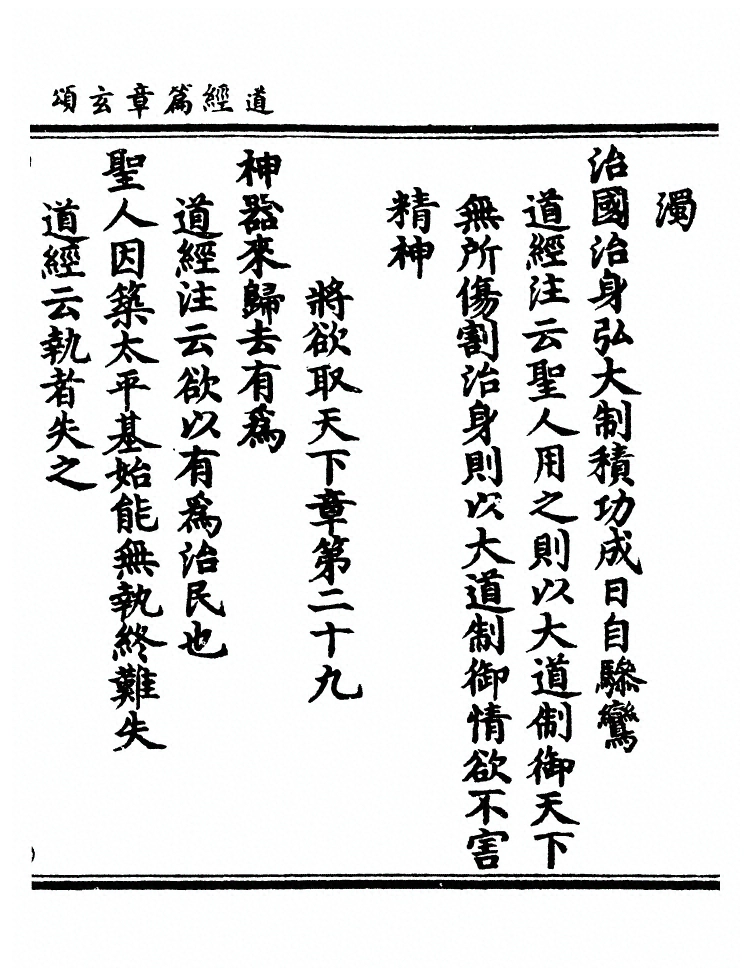 道經篇章玄頌
濁
治國治身弘大制積功成日自驂鸞
道經注云聖人用之則以大道制御天下
無所傷割治身則以大道制御情欲不害
精神
將欲取天下章第二十九
神器來歸去有爲
道經注云欲以有爲治民也
聖人因築太平基始能無執終難失
道經云執者失之